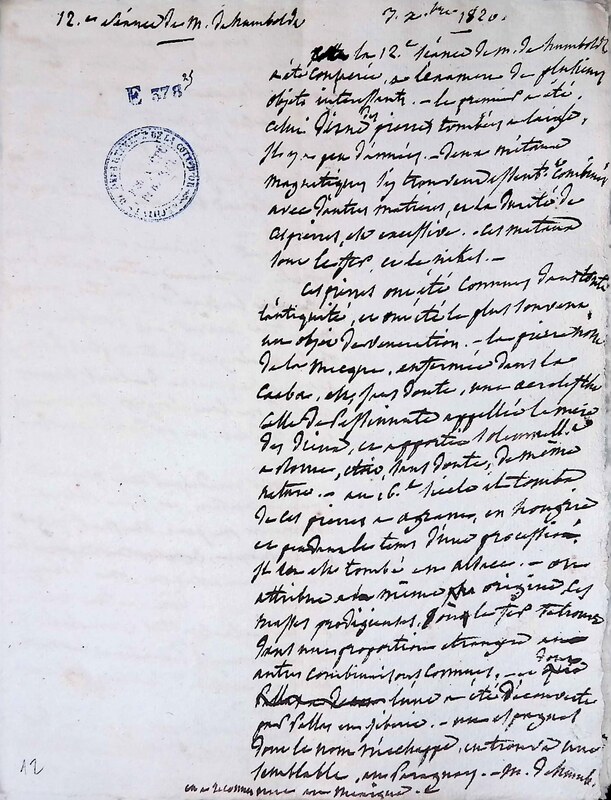 12.e séance de M. de humboldt
7. xbre 1820.
la 12.e séance de M. de humboldt
a été consacrée, a l'examen de plusieurs
objets interessants. - le premier a été
celui d'une pierre tombée a laigle,
il y a peu d'années. - deux métaux
magnetiques s'y trouvent combinés
avec d'autres matieres, et la dureté de
ces pierres, est excessive. - ces métaux
sont le fer, et le nikel. -
E 378
ces pierres ont été connues dans toute
l'antiquité, et ont été le plus souvent
un objet de veneration. - la pierre noire
de la mecque, enfermée dans la
Caaba, est, sans doute, une aerolithe
celle de Pessinunte appellée la mere
des Dieux, et apportée solennellemt
a Rome, était, sans doute, de même
nature. - au 16.e siecle il tomba
de ces pierres a agram, en hongrie
et pendant le tems d'une procession.
il en est tombé en alsace. - on
attribue la même origine les
masses prodigieuses, dont le fer se trouve
dans une proportion etrangere aux
autres combinaisons connues, - et dont
l'une a été découverte
par Pallas en siberie. - un espagnol
dont le nom m'echappe, en trouva une
semblable, au Paraguay. - M. de humb.
en a reconnu une au Mexique.
12